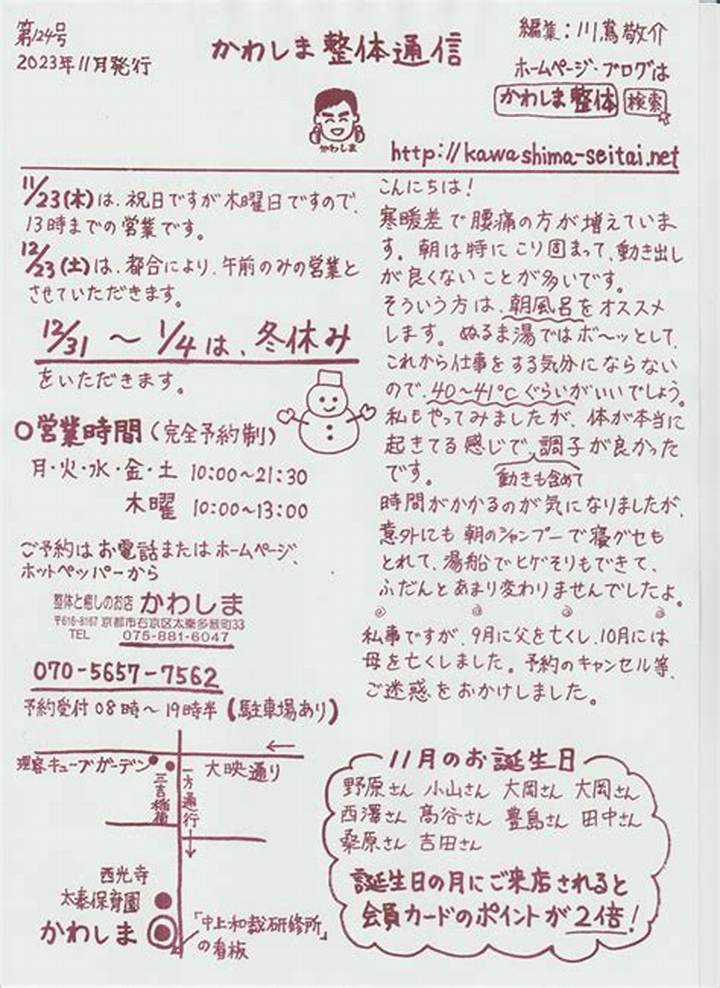 第124号
2023年11月発行
かわしま整体通信
かわしま
編集：川蔦敬介
ホームページ・ブログは
かわしま整体 検索
http://kawashima-seitai.net
11/23(木)は、祝日ですが木曜日ですので、
13時までの営業です。
12/23(土)は、都合により、午前のみの営業と
させていただきます。
12/31 〜 1/4は、冬休み
をいただきます。
○営業時間(完全予約制)
月・火・水・金・土 10:00〜21:30
木曜 10:00〜13:00
ご予約はお電話またはホームページ、
ホットペッパーから
整体と癒しのお店 かわしま
〒616-8167 京都市右京区太秦多薮町33
TEL 075-881-6047
070-5657-7562
予約受付 08時〜19時半(駐車場あり)
理容キューブガーデン
大映通り
三吉稲荷
一方通行
西光寺
太秦保育園
かわしま
「中上和裁研修所」
の看板
こんにちは！
寒暖差で腰痛の方が増えていま
す。朝は特にこり固まって、動き出し
が良くないことが多いです。
そういう方は、朝風呂をオススメ
します。ぬるま湯ではボ〜ッとして、
これから仕事をする気分にならない
ので、40〜41℃ぐらいがいいでしょう。
私もやってみましたが、体が本当に
起きてる感じで、調子が良かった
です。
動きも含めて
時間がかかるのが気になりましたが、
意外にも朝のシャンプーで寝グセも
とれて、湯船でヒゲそりもできて、
ふだんとあまり変わりませんでしたよ。
私事ですが、9月に父を亡くし、10月には
母を亡くしました。予約のキャンセル等、
ご迷惑をおかけしました。
11月のお誕生日
野原さん 小山さん 大岡さん 大岡さん
西澤さん 髙谷さん 豊島さん 田中さん
桑原さん 吉田さん
誕生日の月にご来店されると
会員カードのポイントが2倍！